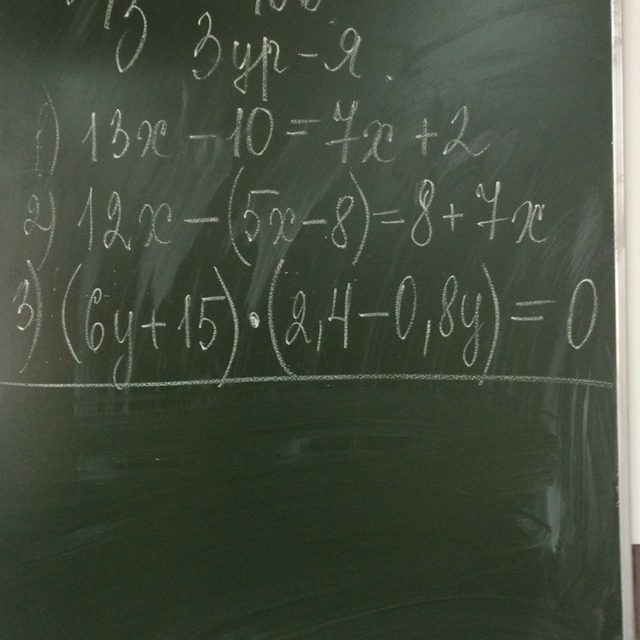 3 ур-я
1) 13x - 10 = 7x + 2
2) 12x - (5x - 8) = 8 + 7x
3) (6y + 15) · (2,4 - 0,8y) = 0